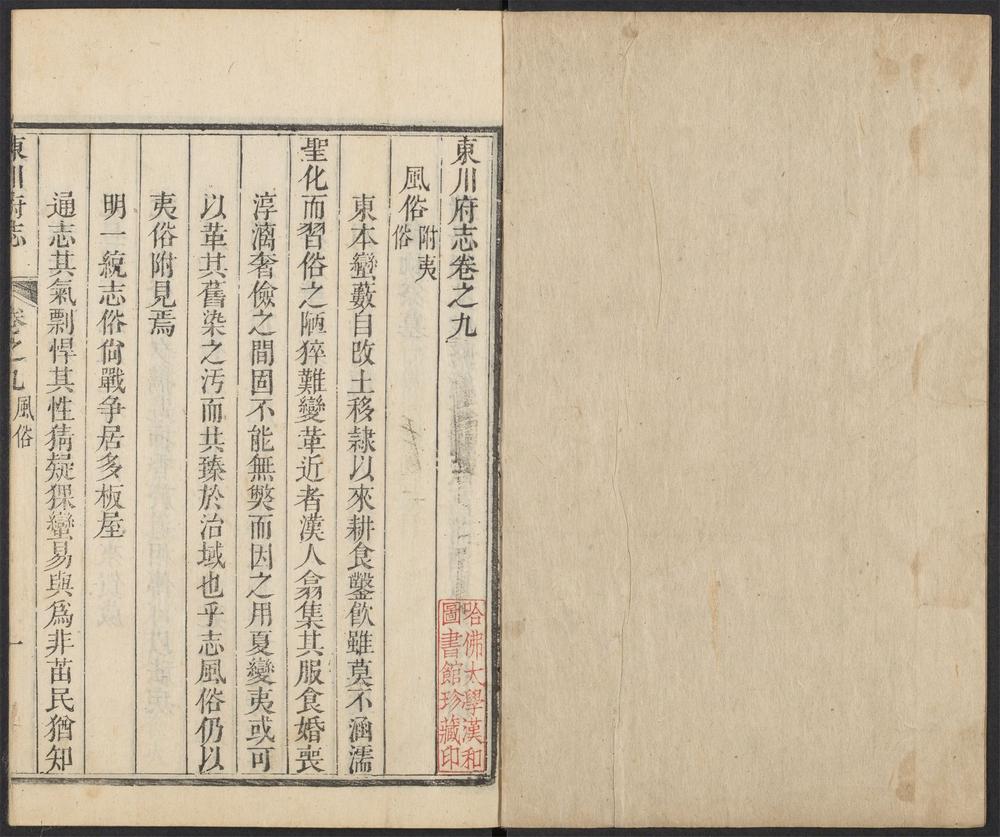 東川府志卷之九
風俗 附夷俗
東本蠻藪自改土移隸以來耕食鑿飲雖莫不涵濡
聖化而習俗之陋猝難變革近者漢人翕集其服食婚喪
淳漓奢儉之間固不能無獘而因之用夏變夷或可
以革其舊染之汚而共臻於治域也乎志風俗仍以
夷俗附見焉
明一統志俗尙戰争居多板屋
通志其氣剽悍其性猜疑猓蠻易與爲非苗民猶知
東川府志 卷之九 風俗 一
哈佛大學漢和
圖書館珍藏印